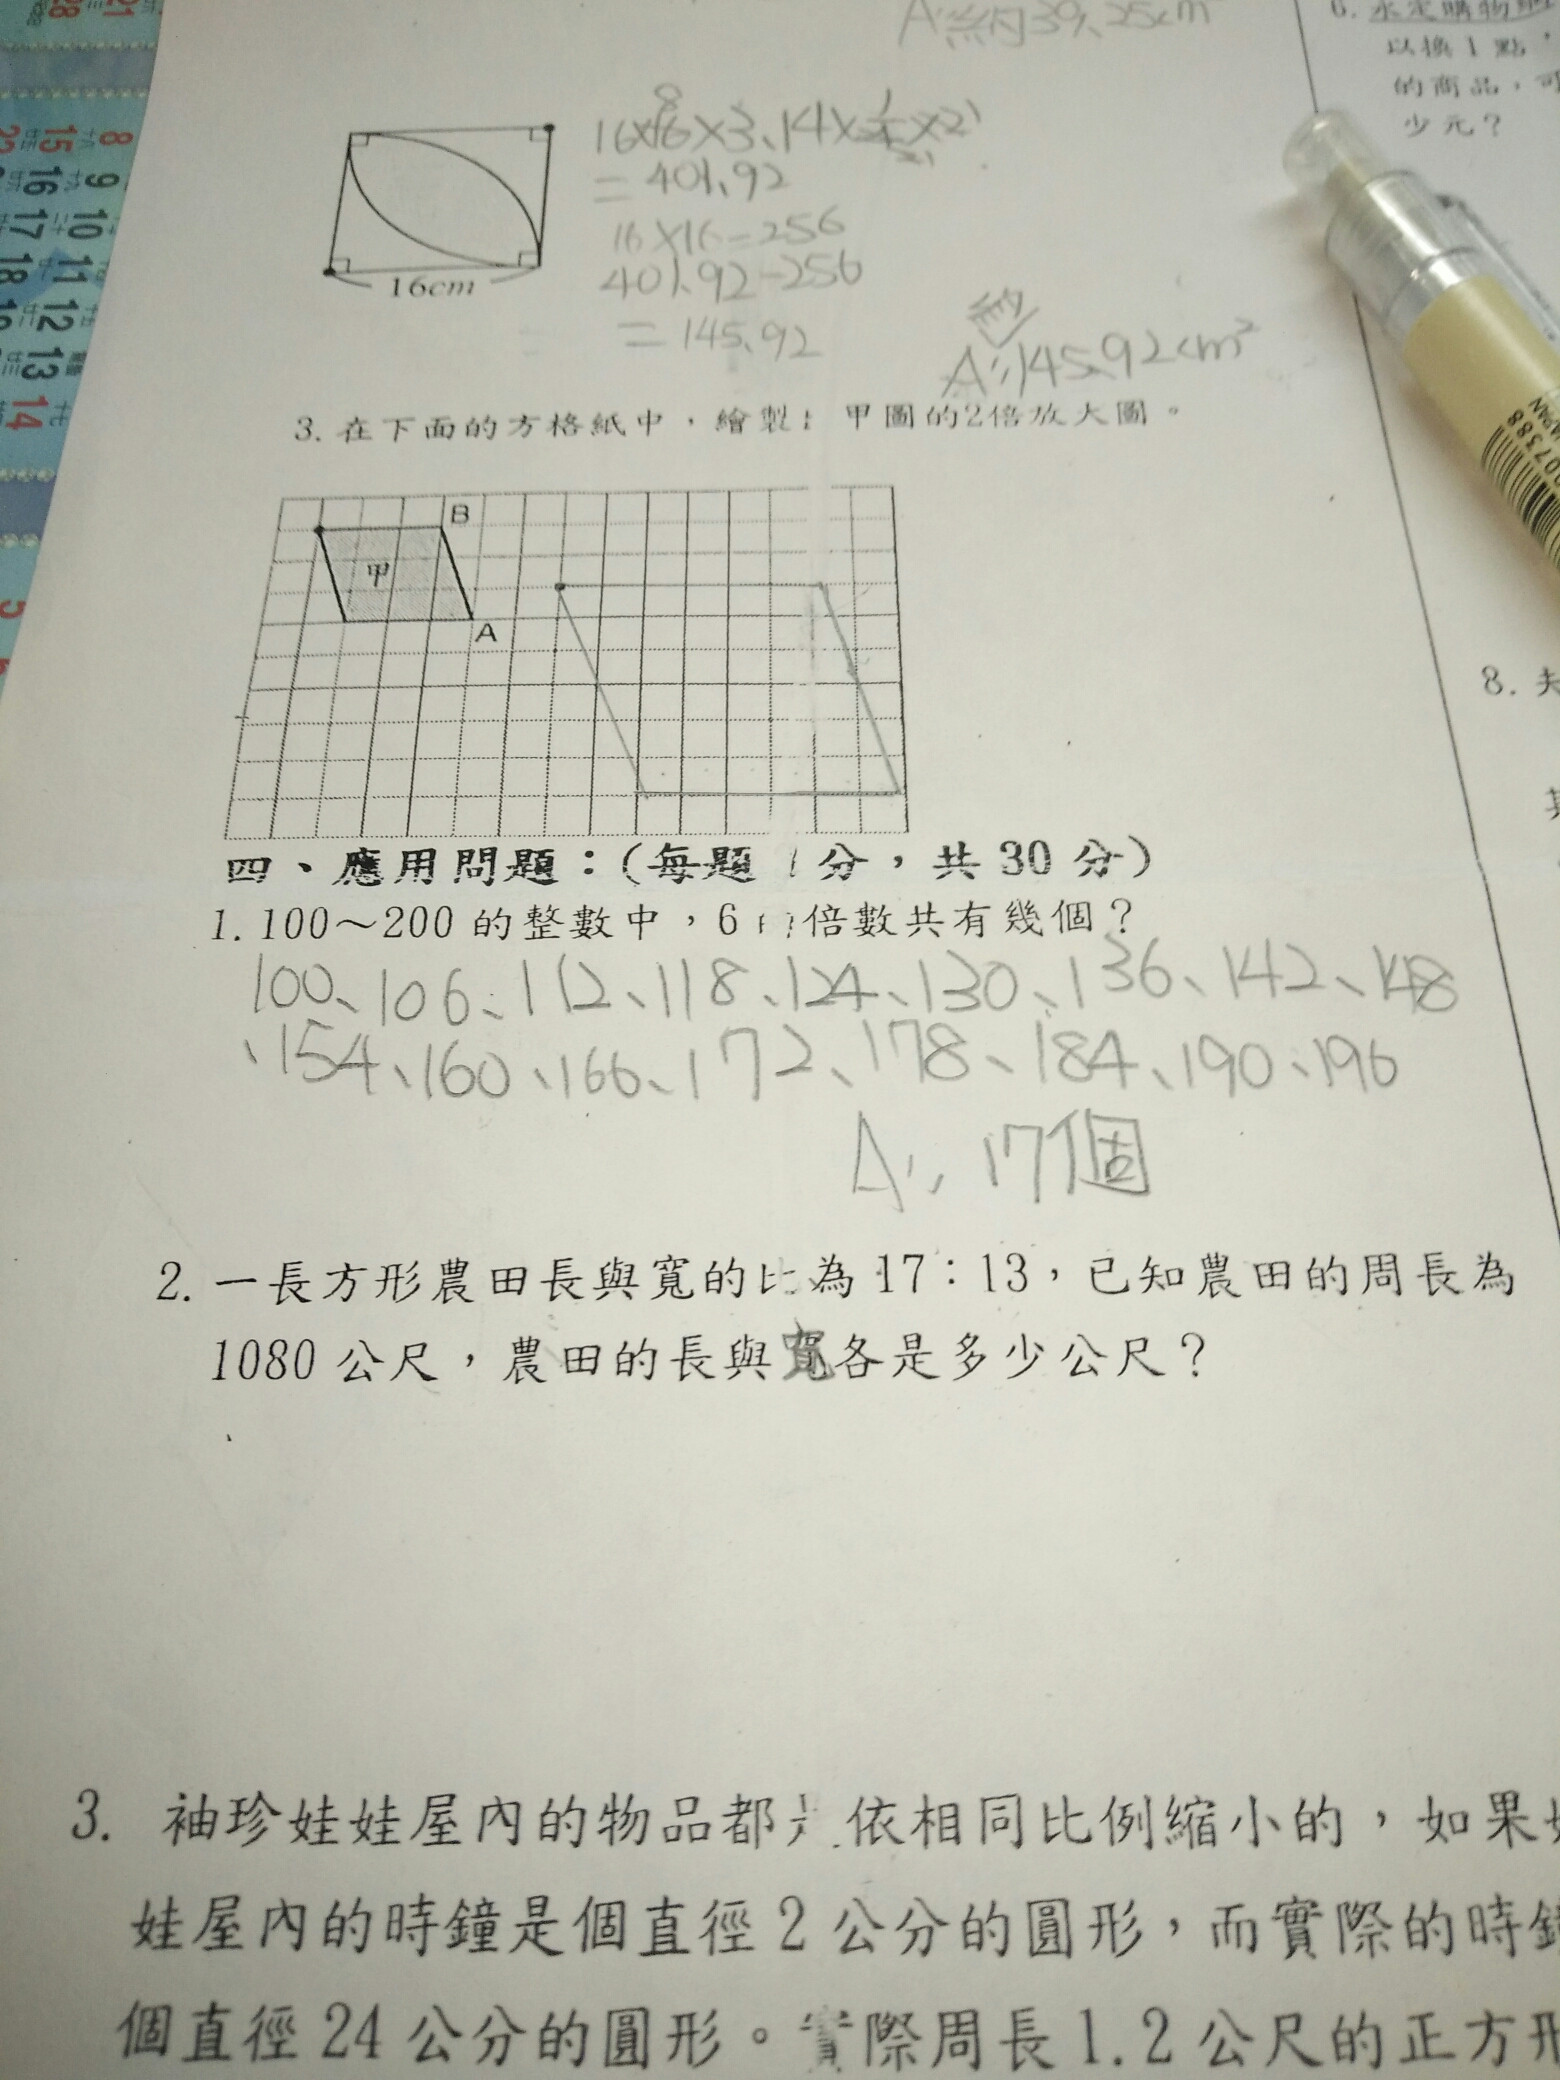 A:約39.25cm²
6. 永定購物網
以換1點，
的商品，可
少元？
8
16×16×3.14×
=401.92
16×16=256
401.92-256
=145.92
16cm
A:145.92cm²
3. 在下面的方格紙中，繪製 甲圖的2倍放大圖。
B
甲
A
8.
四、應用問題：(每題 分，共30分)
1. 100～200的整數中，6 倍數共有幾個？
100、106、112、118、124、130、136、142、148
、154、160、166、172、178、184、190、196
A:17個
2. 一長方形農田長與寬的比為17：13，已知農田的周長為
1080公尺，農田的長與寬各是多少公尺？
3. 袖珍娃娃屋內的物品都 依相同比例縮小的，如果
娃屋內的時鐘是個直徑2公分的圓形，而實際的時鐘
個直徑24公分的圓形。實際周長1.2公尺的正方形
8 15
9 16
10 17
11 18
12
13
14
5
07388
JAPAN